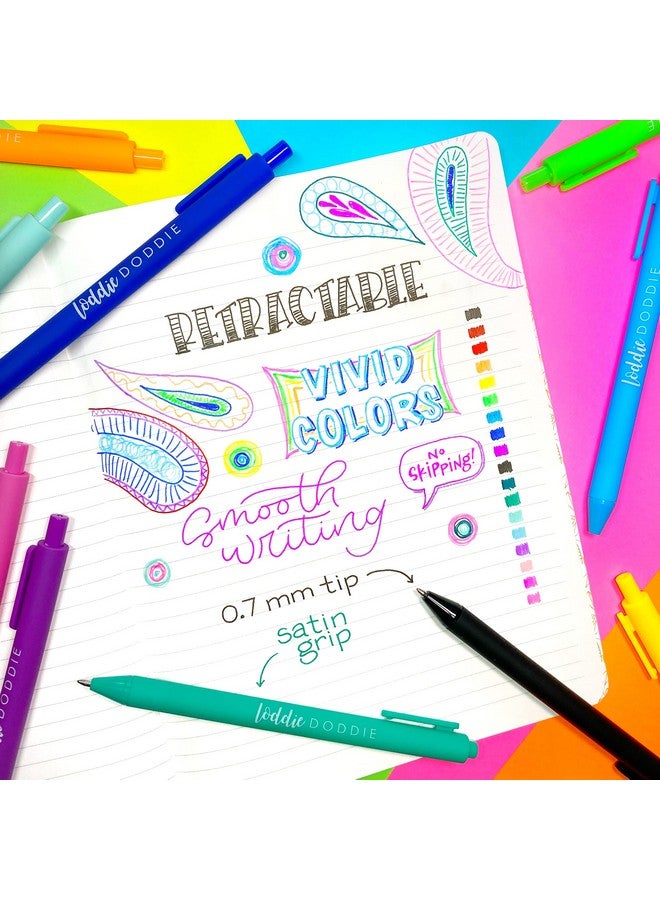 DIE
loddie DODDIE
RETRACTABLE
VIVID
COLORS
NO
SKIPPING!
Smooth
writing
0.7 mm tip
satin
grip
loddie DODDIE
loddie DODDIE
DODDIE
DODDIE